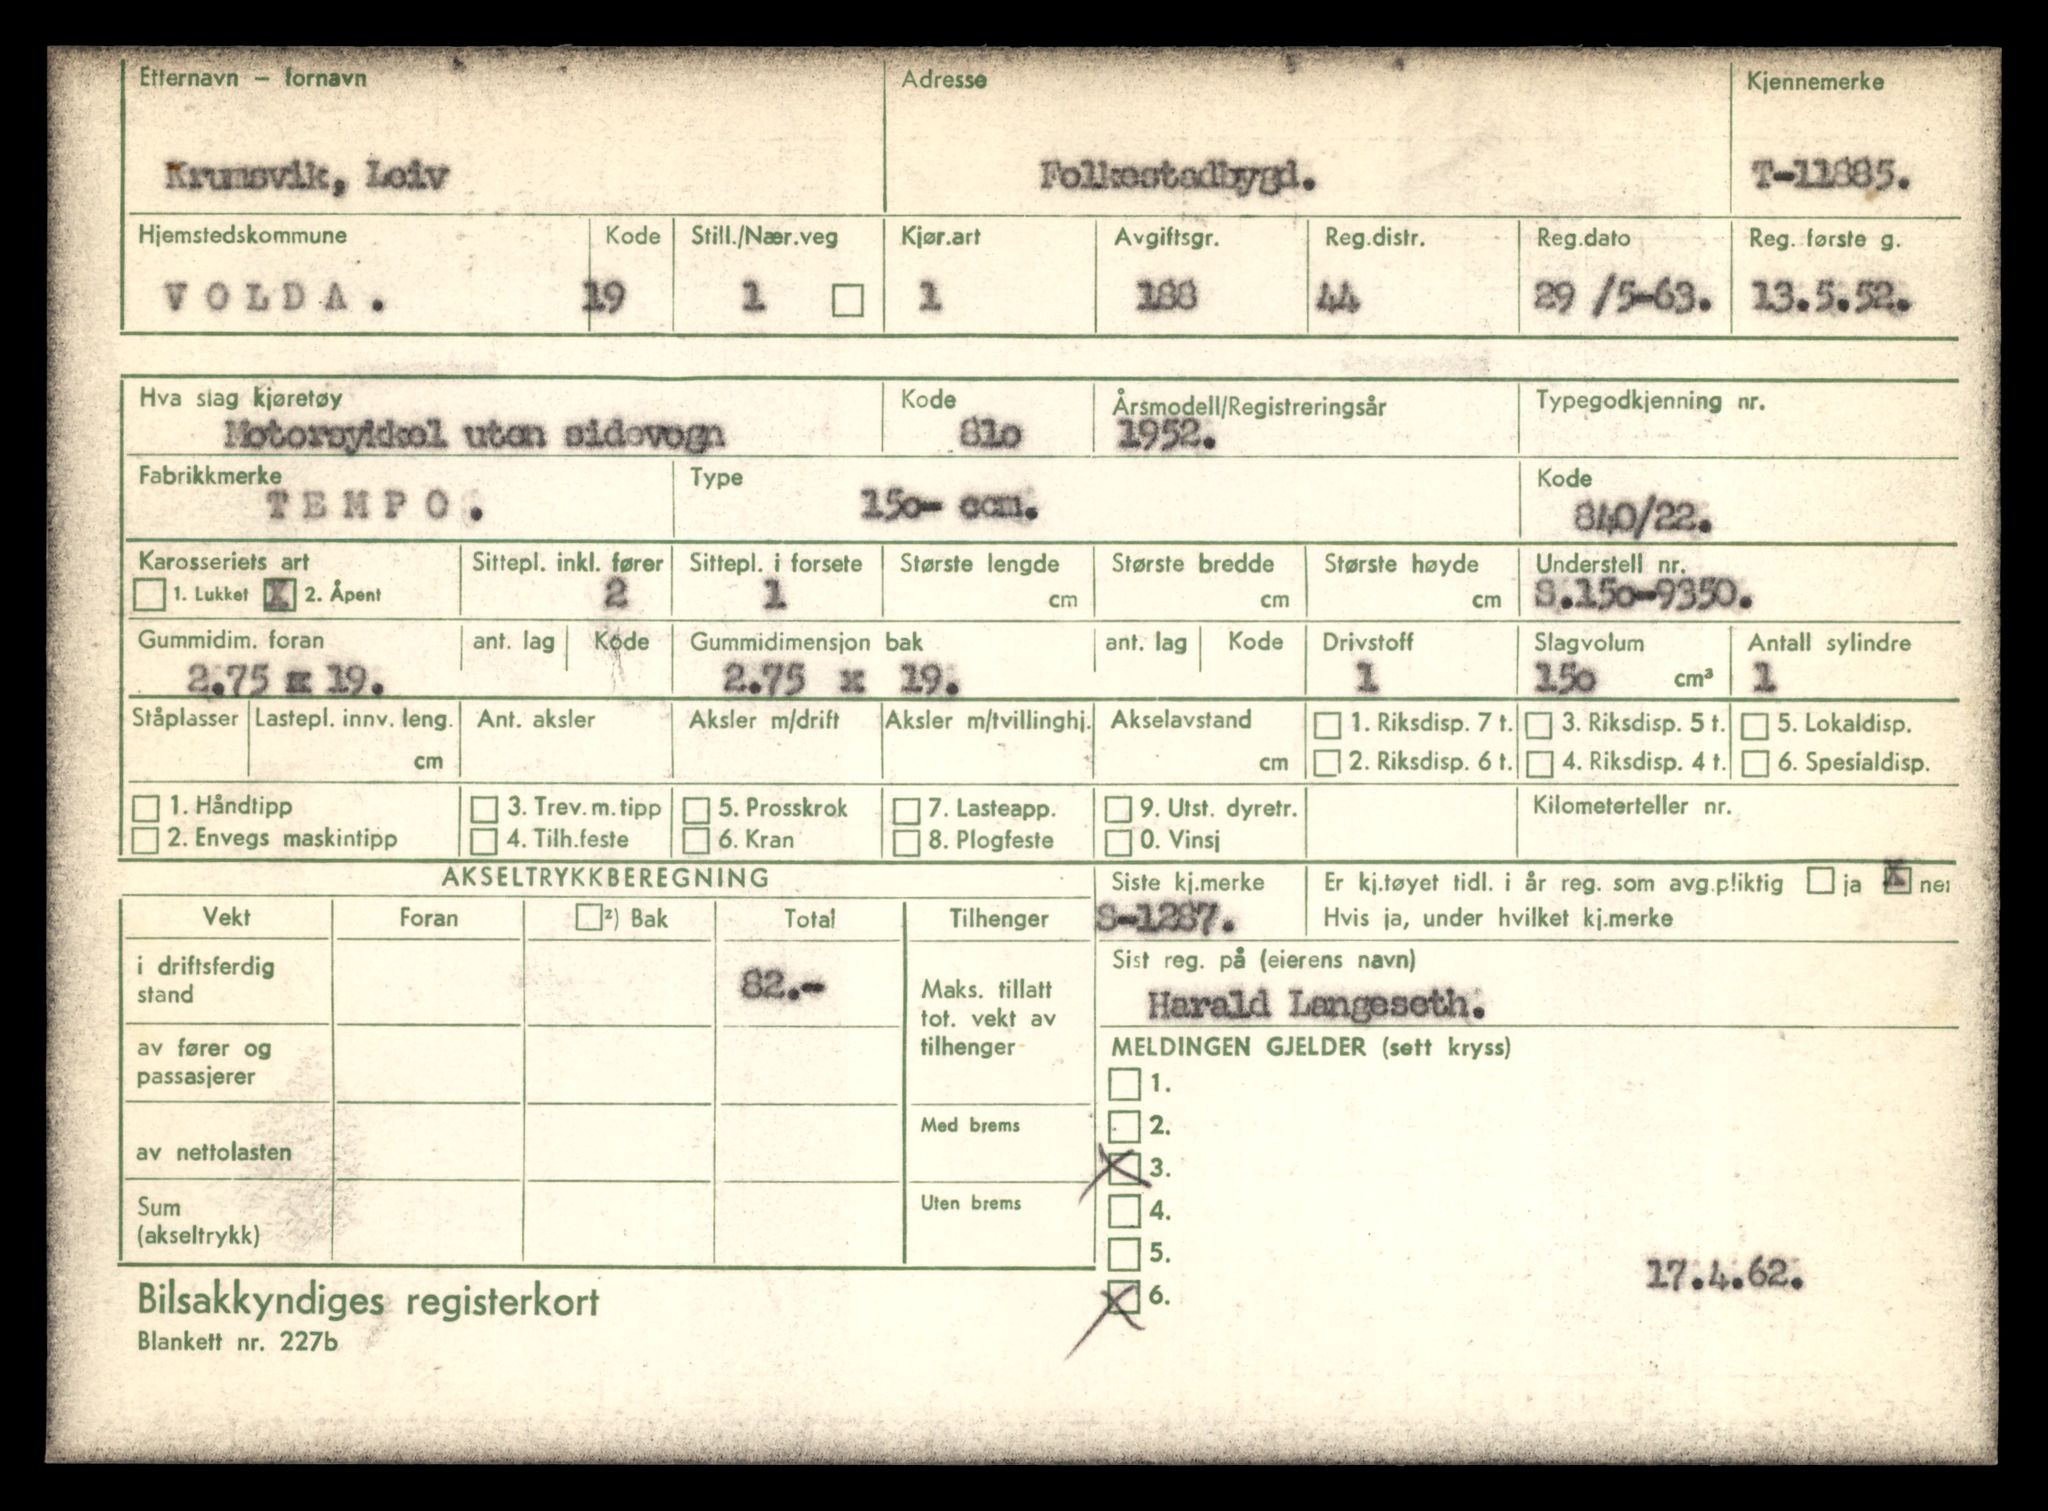 Etternavn – fornavn Adresse Kjennemerke
Krumsvik, Leiv Folkestadbygd. T-11885.
Hjemstedskommune Kode Still./Nær.veg Kjør.art Avgiftsgr. Reg.distr. Reg.dato Reg. første g.
VOLDA. 19 1 1 188 44 29 /5-63. 13.5.52.
Hva slag kjøretøy Kode Årsmodell/Registreringsår Typegodkjenning nr.
Motorsykkel uten sidevogn 81o 1952.
Fabrikkmerke Type Kode
TEMPO. 15o- ccm. 840/22.
Karosseriets art Sittepl. inkl. fører Sittepl. i forsete Største lengde Største bredde Største høyde Understell nr.
1. Lukket X 2. Åpent 2 1 cm cm cm S.15o-9350.
Gummidim. foran ant. lag Kode Gummidimensjon bak ant. lag Kode Drivstoff Slagvolum Antall sylindre
2.75 x 19. 2.75 x 19. 1 15o cm³ 1
Ståplasser Lastepl. innv. leng. Ant. aksler Aksler m/drift Aksler m/tvillinghj. Akselavstand 1. Riksdisp. 7 t. 3. Riksdisp. 5 t. 5. Lokaldisp.
cm cm 2. Riksdisp. 6 t. 4. Riksdisp. 4 t. 6. Spesialdisp.
1. Håndtipp 3. Trev. m. tipp 5. Prosskrok 7. Lasteapp. 9. Utst. dyretr. Kilometerteller nr.
2. Envegs maskintipp 4. Tilh.feste 6. Kran 8. Plogfeste 0. Vinsj
AKSELTRYKKBEREGNING Siste kj.merke Er kj.tøyet tidl. i år reg. som avg.pliktig ja X nei
Vekt Foran ²) Bak Total Tilhenger S-1287. Hvis ja, under hvilket kj.merke
i driftsferdig stand 82.- Maks. tillatt tot. vekt av tilhenger Sist reg. på (eierens navn)
Harald Langeseth.
av fører og passasjerer MELDINGEN GJELDER (sett kryss)
1.
av nettolasten Med brems 2.
X 3.
Sum (akseltrykk) Uten brems 4.
5.
17.4.62.
Bilsakkyndiges registerkort X 6.
Blankett nr. 227b